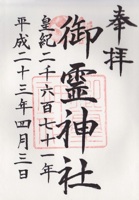 奉拝
御霊神社
皇紀二千六百七十一年
平成二十三年四月三日